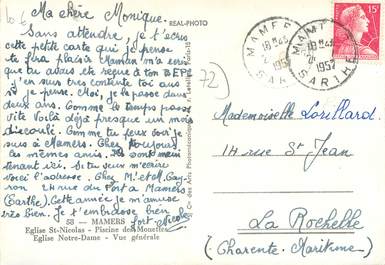 Ma chère Monique.
REAL-PHOTO
Sans attendre, je t'écris
cette petite carte qui je pense
te fera plaisir Maman m'a écrit
que tu avais été reçue à ton BEPC
j'en suis très contente toi aussi
je pense. Moi, je la passe dans
deux ans. Comme le temps passe
vite. Voilà déjà presque un mois
d'écoulé. Comme tu peux voir je
suis à Mamers. Chez toujours
les mêmes amis.
tenant ici. Si tu veux m'écrire
voici l'adresse. Chez M. et M.
24 rue du Fort à Mamers
(Sarthe). Cette année je m'amuse
très bien. Je t'embrasse bien
fort Nicole
58 - MAMERS
Eglise St-Nicolas - Piscine des Mouettes
Eglise Notre-Dame - Vue générale
72)
MAMERS
1957
SARTHE
MAMERS
1957
SARTHE
15F
Mademoiselle Lorillard
14 rue St Jean
La Rochelle
(Charente. Maritime)